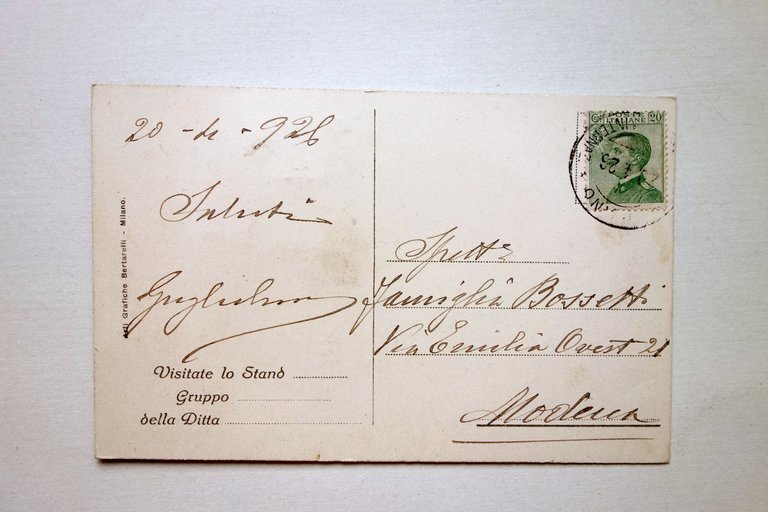 20 - 4 - 926
Saluti
Guglielmo
Arti Grafiche Bertarelli - Milano.
Visitate lo Stand
Gruppo
della Ditta
Cent. ITALIANE 20
Spett.
Famiglia Bossetti
Via Emilia Ovest 21
Modena